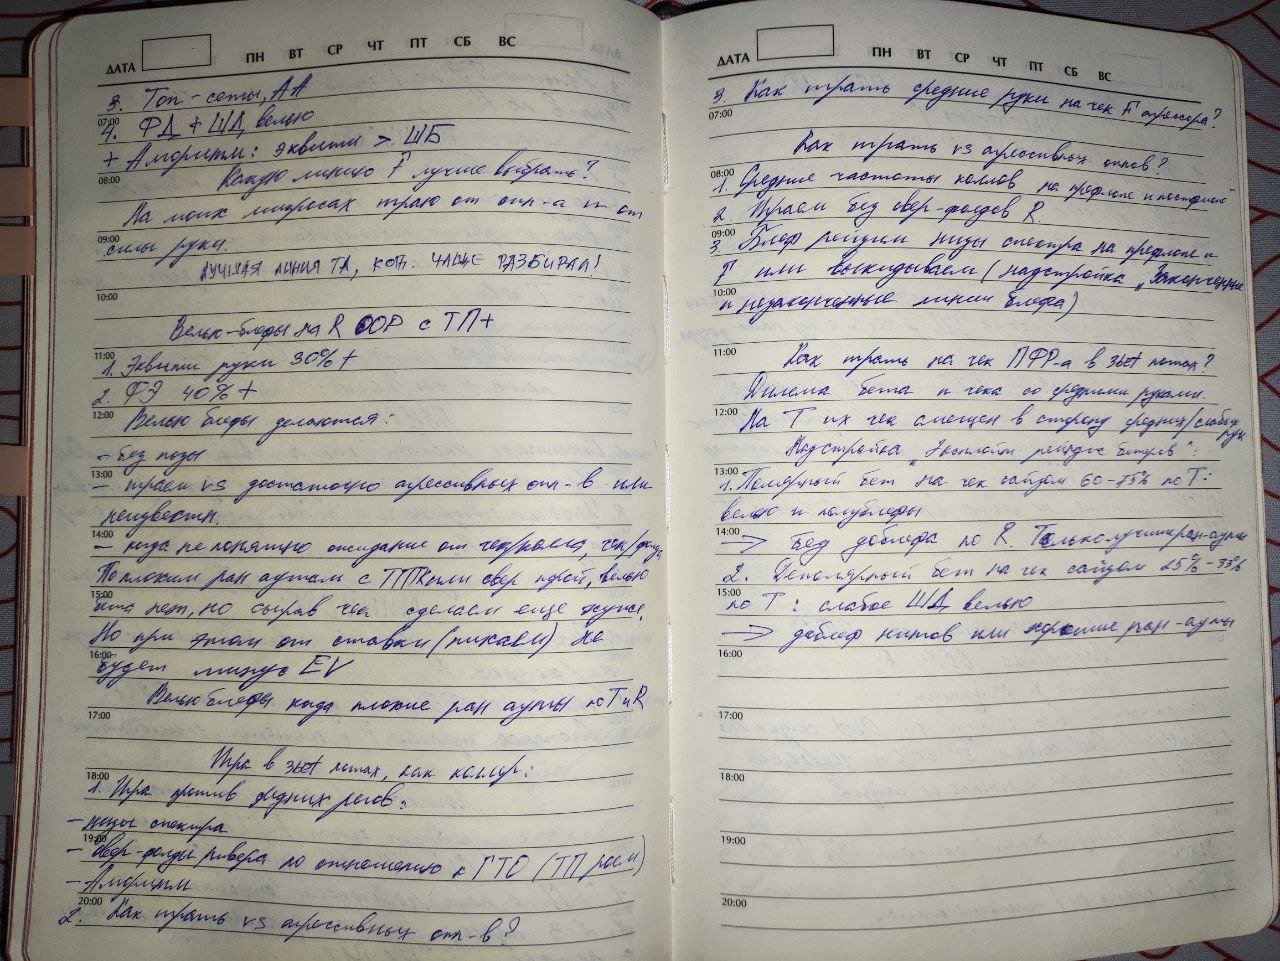 ДАТА ПН ВТ СР ЧТ ПТ СБ ВС
3. Топ-сеты, АА
07:00
4. ФД + ШД велью
+ Алгоритм: эквити > ШБ
08:00
Какую линию F лучше выбрать?
На моих микросах играю от опп-а и от
09:00
силы руки.
ЛУЧШАЯ ЛИНИЯ ТА, КОТ. ЧАЩЕ РАЗБИРАЛ!
10:00
Велью-блефы на R OOP с ТП+
11:00
1. Эквити руки 30%+
2. ФЭ 40%+
12:00
Велью блефы делаются:
- без позы
13:00
- играем vs достаточно агрессивных опп-в или
неизвестн.
14:00
- когда не понятно ожидание от чек/колла, чек/фолда
По плохим ран аутам с ТПТК или овер парой, велью
15:00
бета нет, но сыграв чек сделаем еще хуже.
Но при этом от ставки (пихаем) не
16:00
будет минус EV
Велью блефы когда плохие ран ауты по T и R
17:00
Игра в 3bet потах, как коллер:
18:00
1. Игра против средних регов:
- низы спектра
19:00
- Овер-фолды ривера по отношению к ГТО (ТП роем)
- Алгоритм
20:00
2. Как играть vs агрессивных опп-в?
ДАТА ПН ВТ СР ЧТ ПТ СБ ВС
3. Как играть средние руки на чек F агрессора?
07:00
Как играть vs агрессивных оппов?
08:00
1. Средние частоты коллов на префлопе и постфлопе
2. Играем без овер-фолдов R.
09:00
3. Блеф рейзим низы спектра на префлопе и
F или выкидываем (надстройка "Законченные
10:00
и незаконченные линии блефа)
11:00
Как играть на чек ПФР-а в 3bet потах?
Дилема бета и чека со средними руками.
12:00
На T их чек смещен в сторону средних/слабых рук
Надстройка " рейндж бетеров":
13:00
1. Полярный бет на чек сайзом 60-75% по T:
велью и полублефы
14:00
→ Без доблефа по R. Только лучшие ран-ауты
2. Деполярный бет на чек сайзом 25%-33%
15:00
по T: слабое ШД, велью
→ доблеф натсов или хорошие ран-ауты
16:00
17:00
18:00
19:00
20:00